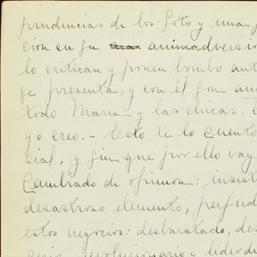 prudencias de los foto y una p
cion en su animadversió
lo critican y ponen bombo ant
se presenta, y con él gran am
todo Maria y las chicas. E
yo creo. - Esto te lo cuento
cial, y sin que por ello vay
Cambiado de opinion: insist
desastroso elemento,
estos negocios: desbaratado, des
revolucionario y lider di